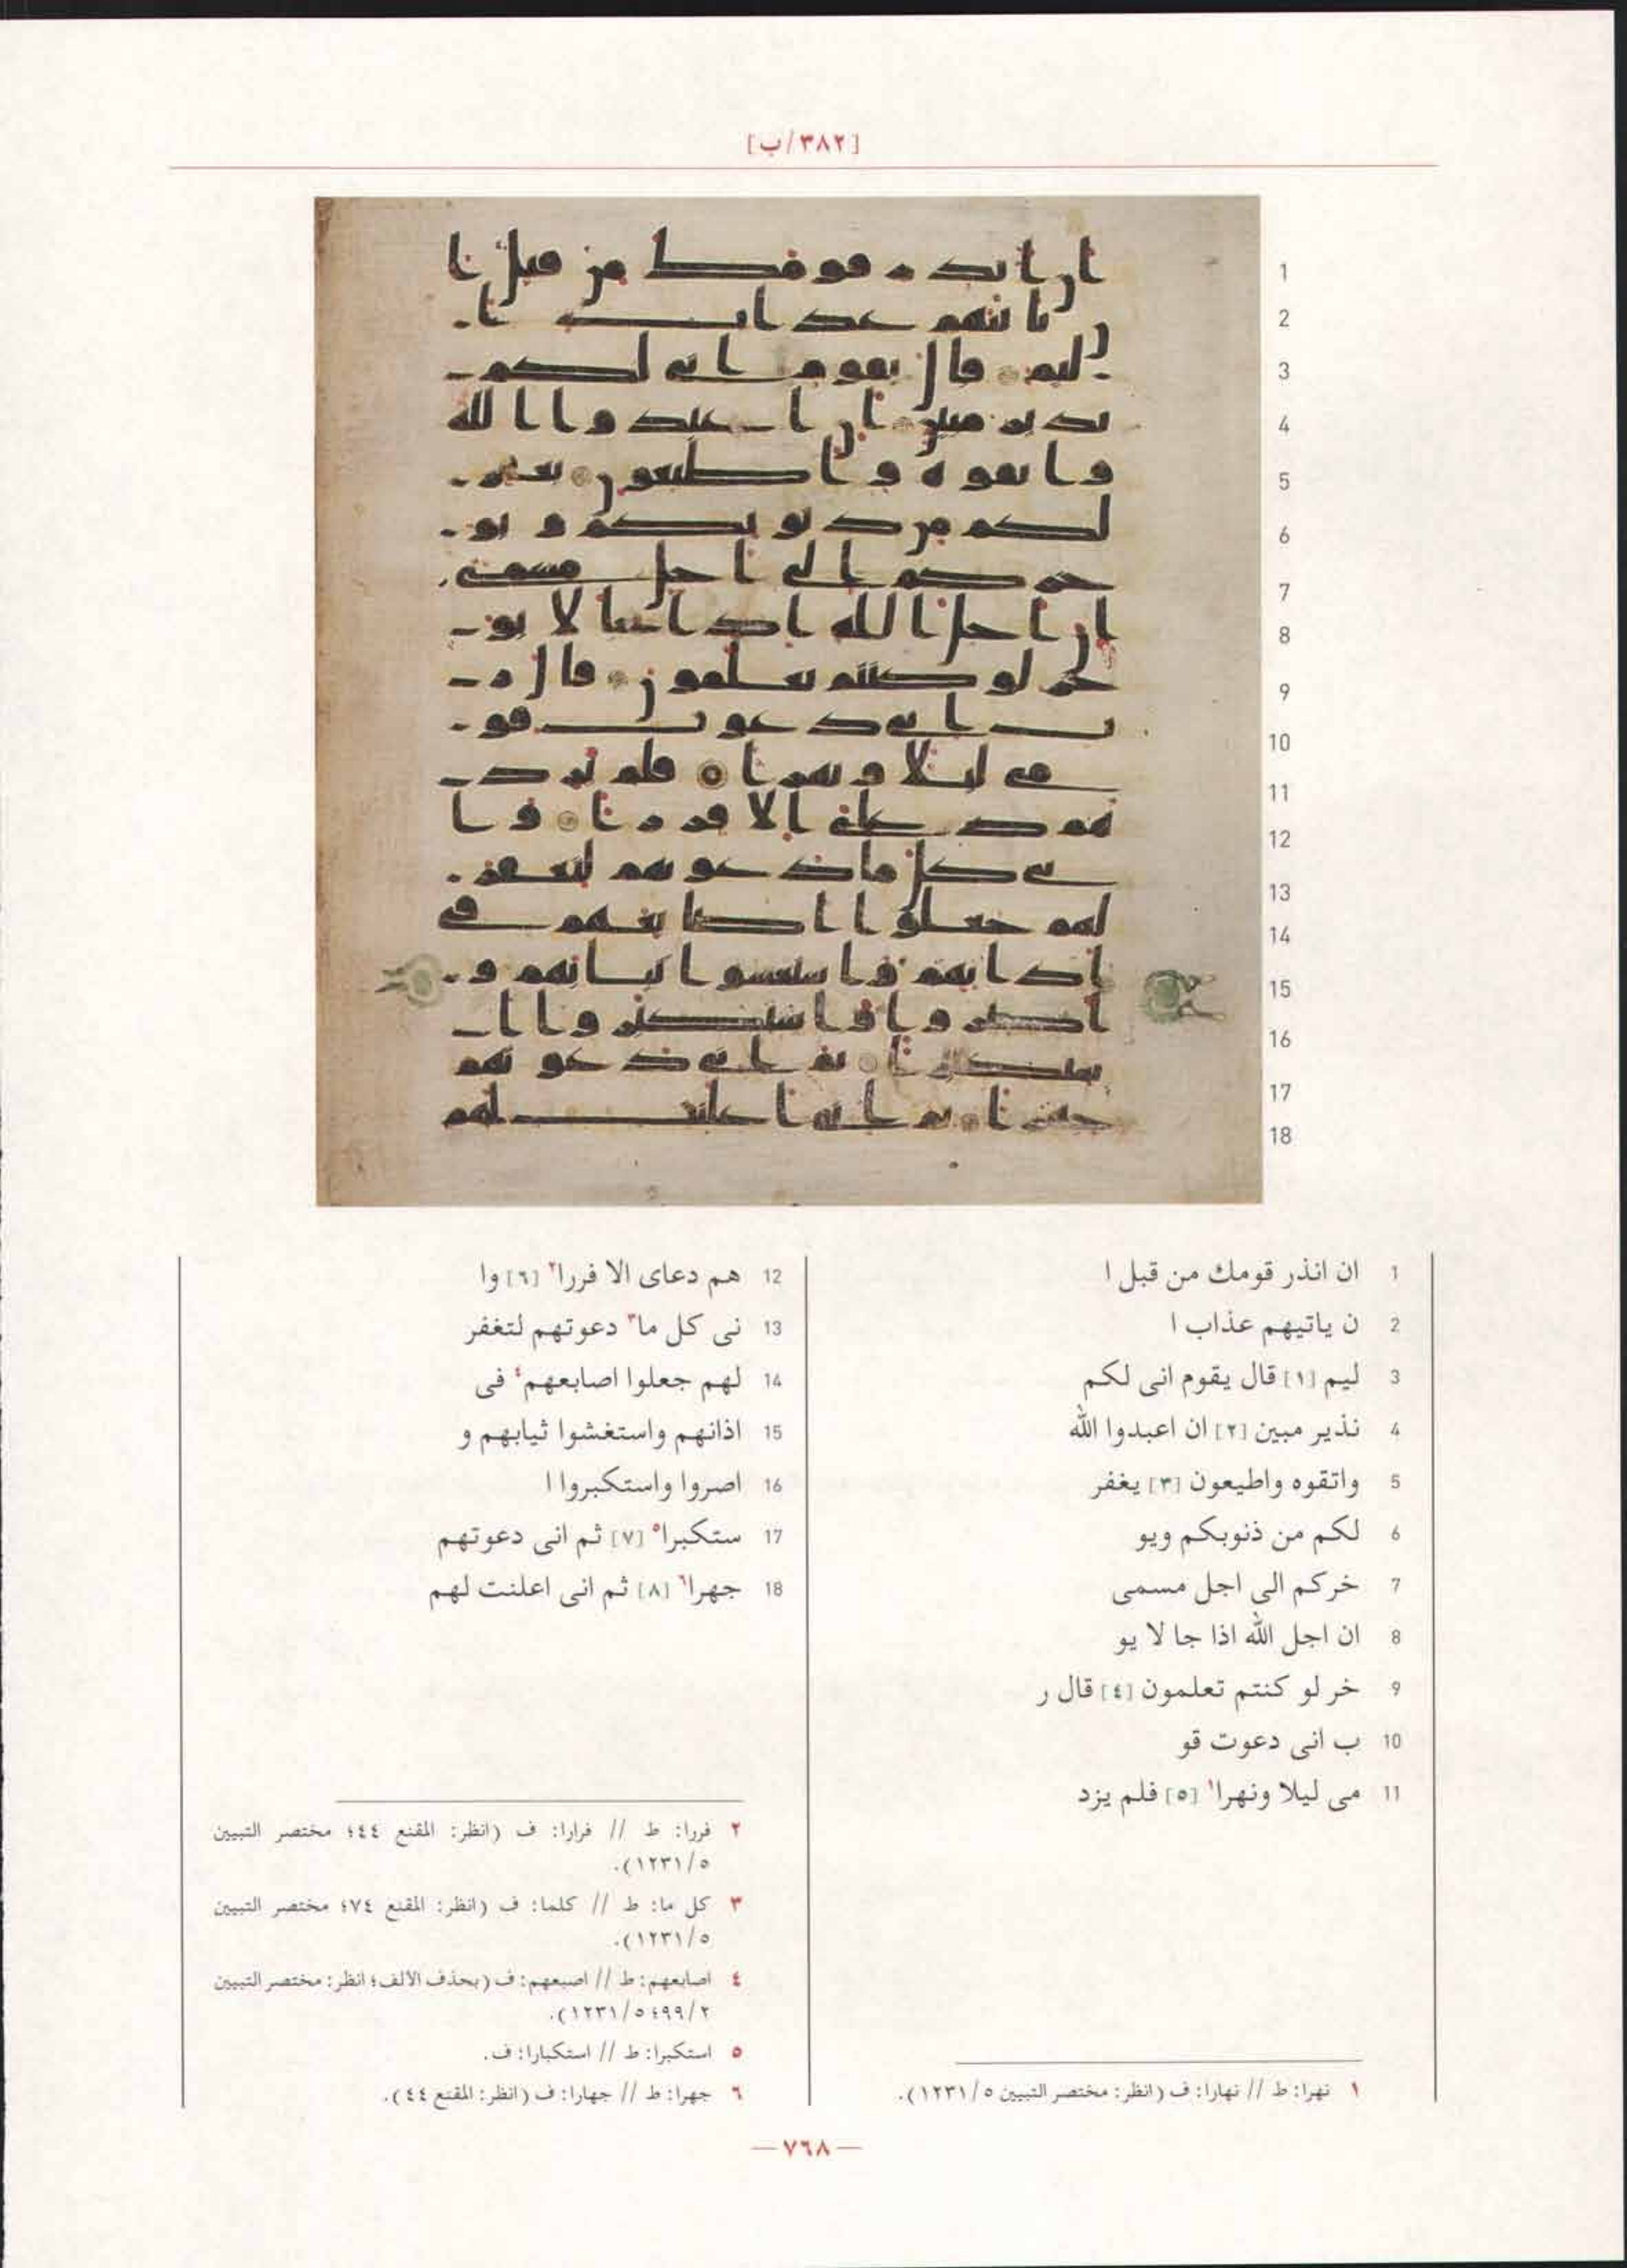 [٣٨٢/ب]
1 ان انذر قومك من قبل ا
2 ن ياتيهم عذاب ا
3 ليم [١] قال يقوم انى لكم
4 نذير مبين [٢] ان اعبدوا الله
5 واتقوه واطيعون [٣] يغفر
6 لكم من ذنوبكم ويو
7 خركم الى اجل مسمى
8 ان اجل الله اذا جا لا يو
9 خر لو كنتم تعلمون [٤] قال ر
10 ب انى دعوت قو
11 مى ليلا ونهرا١ [٥] فلم يزد
١ نهرا: ط // نهارا: ف (انظر: مختصر التبيين ٥/١٢٣١).
12 هم دعاى الا فررا٢ [٦] وا
13 نى كل ما٣ دعوتهم لتغفر
14 لهم جعلوا اصابعهم٤ فى
15 اذانهم واستغشوا ثيابهم و
16 اصروا واستكبروا ا
17 ستكبرا٥ [٧] ثم انى دعوتهم
18 جهرا٦ [٨] ثم انى اعلنت لهم
٢ فررا: ط // فرارا: ف (انظر: المقنع ٤٤؛ مختصر التبيين
٥/١٢٣١).
٣ كل ما: ط // كلما: ف (انظر: المقنع ٧٤؛ مختصر التبيين
٥/١٢٣١).
٤ اصابعهم: ط // اصبعهم: ف (بحذف الألف؛ انظر: مختصر التبيين
٢/٩٩؛ ٥/١٢٣١).
٥ استكبرا: ط // استكبارا: ف.
٦ جهرا: ط // جهارا: ف (انظر: المقنع ٤٤).
— ٧٦٨ —